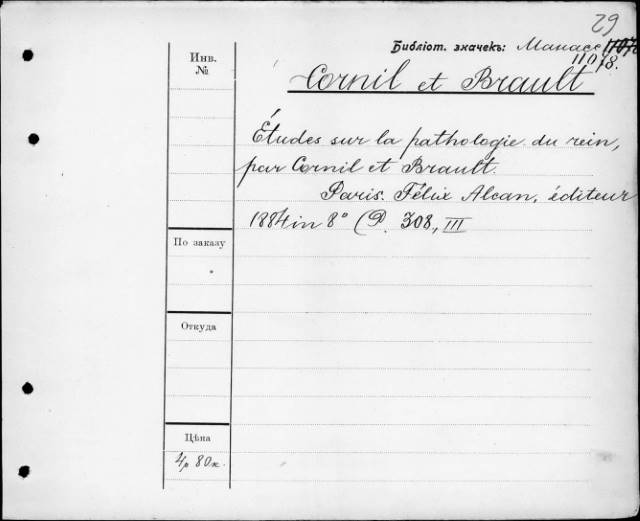 29
Инв. №
Библіот. значекъ: Манасс
11078.
Cornil et Brault
Études sur la pathologie du rein,
par Cornil et Brault.
Paris. Félix Alcan, éditeur
1884 in 8° (P. 308, III
По заказу
Откуда
Цѣна
4р 80к.